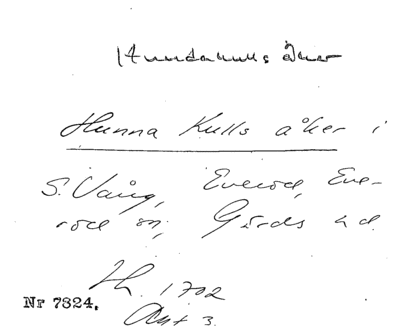 Hundakulls åker
Hunna Kulls åker i
S. Vång, Everöd, Eve-
röd sn, Gärds hd.
Lh. 1702
Nr 7824.
Akt 3.